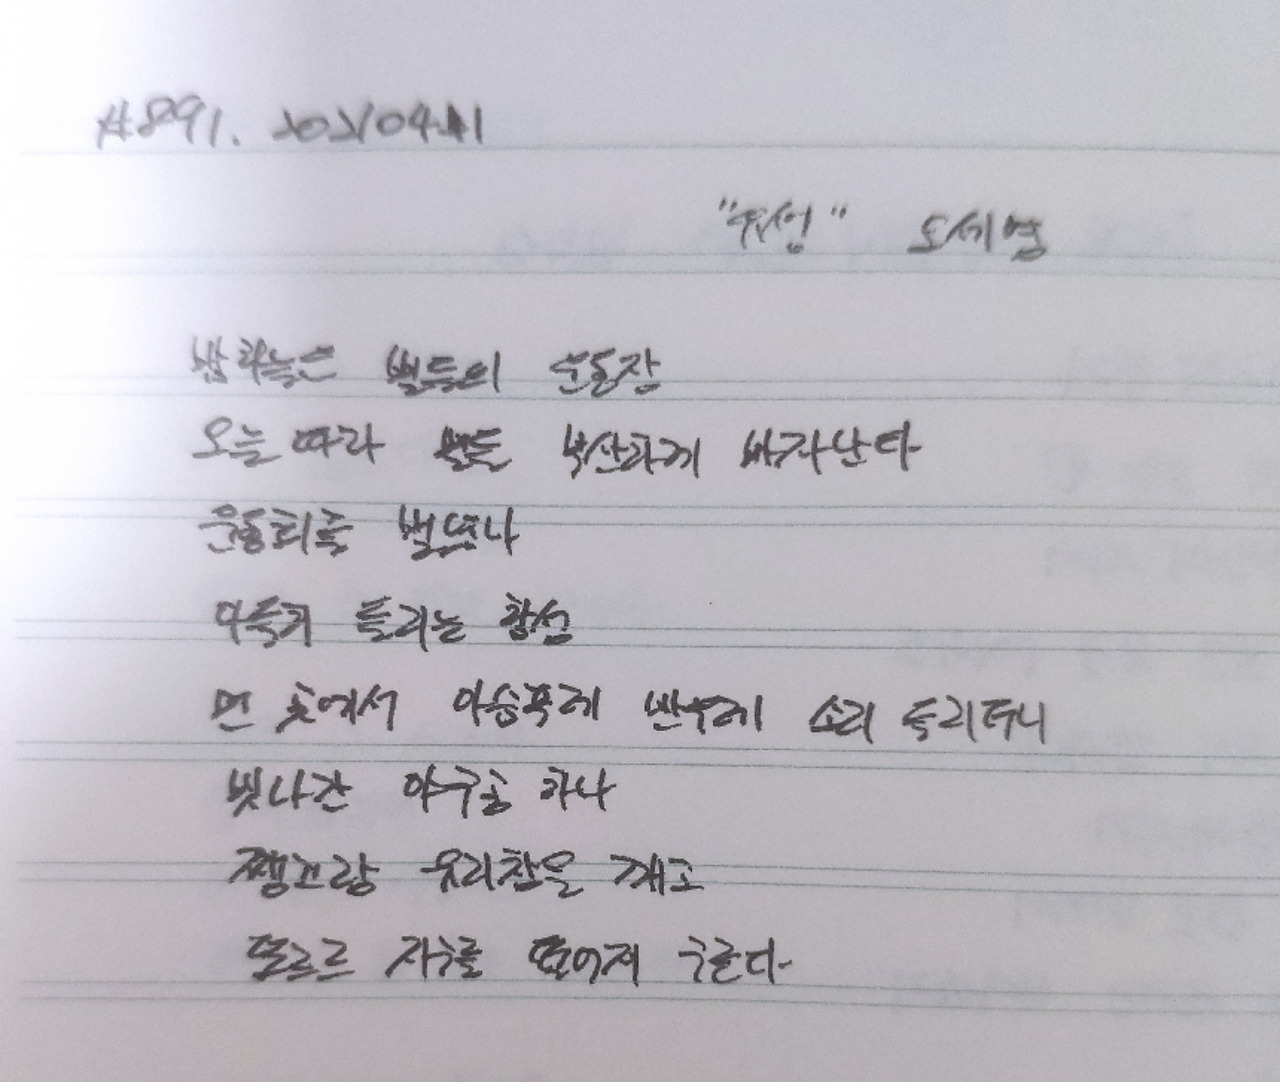 #891. 20210411
"유성" 오세영
밤하늘은 별들의 운동장
오늘따라 별들 부산하게 바자닌다
운동회를 벌렸나
아득히 들리는 함성
먼 곳에서 아슴푸레 빈우레 소리 들리더니
빗나간 야구공 하나
쨍그랑 유리창을 깨고
또르르 지구로 떨어져 구른다